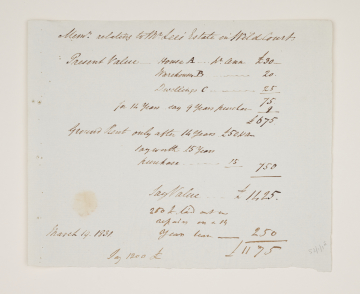 Memm. relating to Mr Lee's Estate in Wild Court
Present Value House A pr Ann £30
Warehouse B 20
Dwellings C 25
75
for 14 Years say 9 Years purchase 9
£675
Ground Rent only after 14 Years £50
say worth 15 Years
purchase 15 750
Say Value £ 1125.
250£ laid out in
repairs on a
Years lease 250
March 14. 1831 £1175
Say 1200£